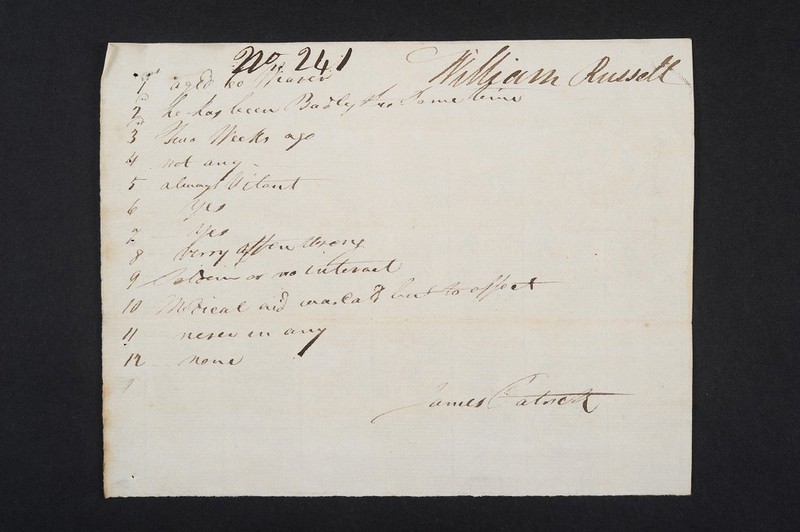 No. 241
William Russell
1 aged 60 Weaver
2 he has been Badly this Some time
3 two Weeks ago
4 not any
5 always Vilant
6 Yes
7 Yes
8 verry offen
9 or no interval
10 Medical aid was but to effect
11 never in any
12 none
James